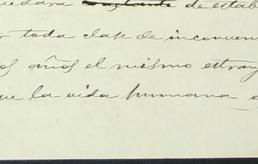 uedara bastante de estab
toda clase de inconven
os años el mismo estran
ue la vida humana e